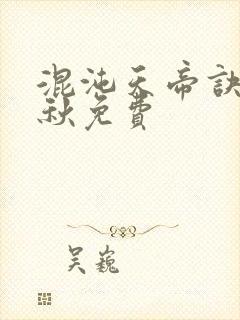 混沌天帝訣
秋免費
吴巍